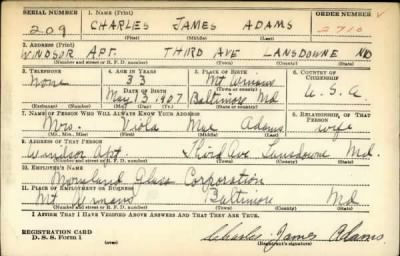 SERIAL NUMBER 1. NAME (Print) ORDER NUMBER
209 CHARLES JAMES ADAMS 2710
(First) (Middle) (Last)
2. ADDRESS (Print)
WINDSOR APT. THIRD AVE LANSDOWNE MD
(Number and street or R. F. D. number) (Town) (County) (State)
3. TELEPHONE 4. AGE IN YEARS 5. PLACE OF BIRTH 6. COUNTRY OF CITIZENSHIP
None 33 Mt Winans
DATE OF BIRTH
May 13 1907 Baltimore Md U.S.A
(Exchange) (Number) (Mo.) (Day) (Yr.) (State or country)
7. NAME OF PERSON WHO WILL ALWAYS KNOW YOUR ADDRESS 8. RELATIONSHIP OF THAT PERSON
Mrs. Viola Mae Adams wife
(Mr., Mrs., Miss) (First) (Middle) (Last)
9. ADDRESS OF THAT PERSON
Windsor Apt Third Ave Lansdowne Md.
(Number and street or R. F. D. number) (Town) (County) (State)
10. EMPLOYER'S NAME
Maryland Glass Corporation
11. PLACE OF EMPLOYMENT OR BUSINESS
Mt Winans Baltimore Md
(Number and street or R. F. D. number) (Town) (County) (State)
I AFFIRM THAT I HAVE VERIFIED ABOVE ANSWERS AND THAT THEY ARE TRUE.
REGISTRATION CARD
D. S. S. Form 1 Charles James Adams
(over) (Registrant's signature)